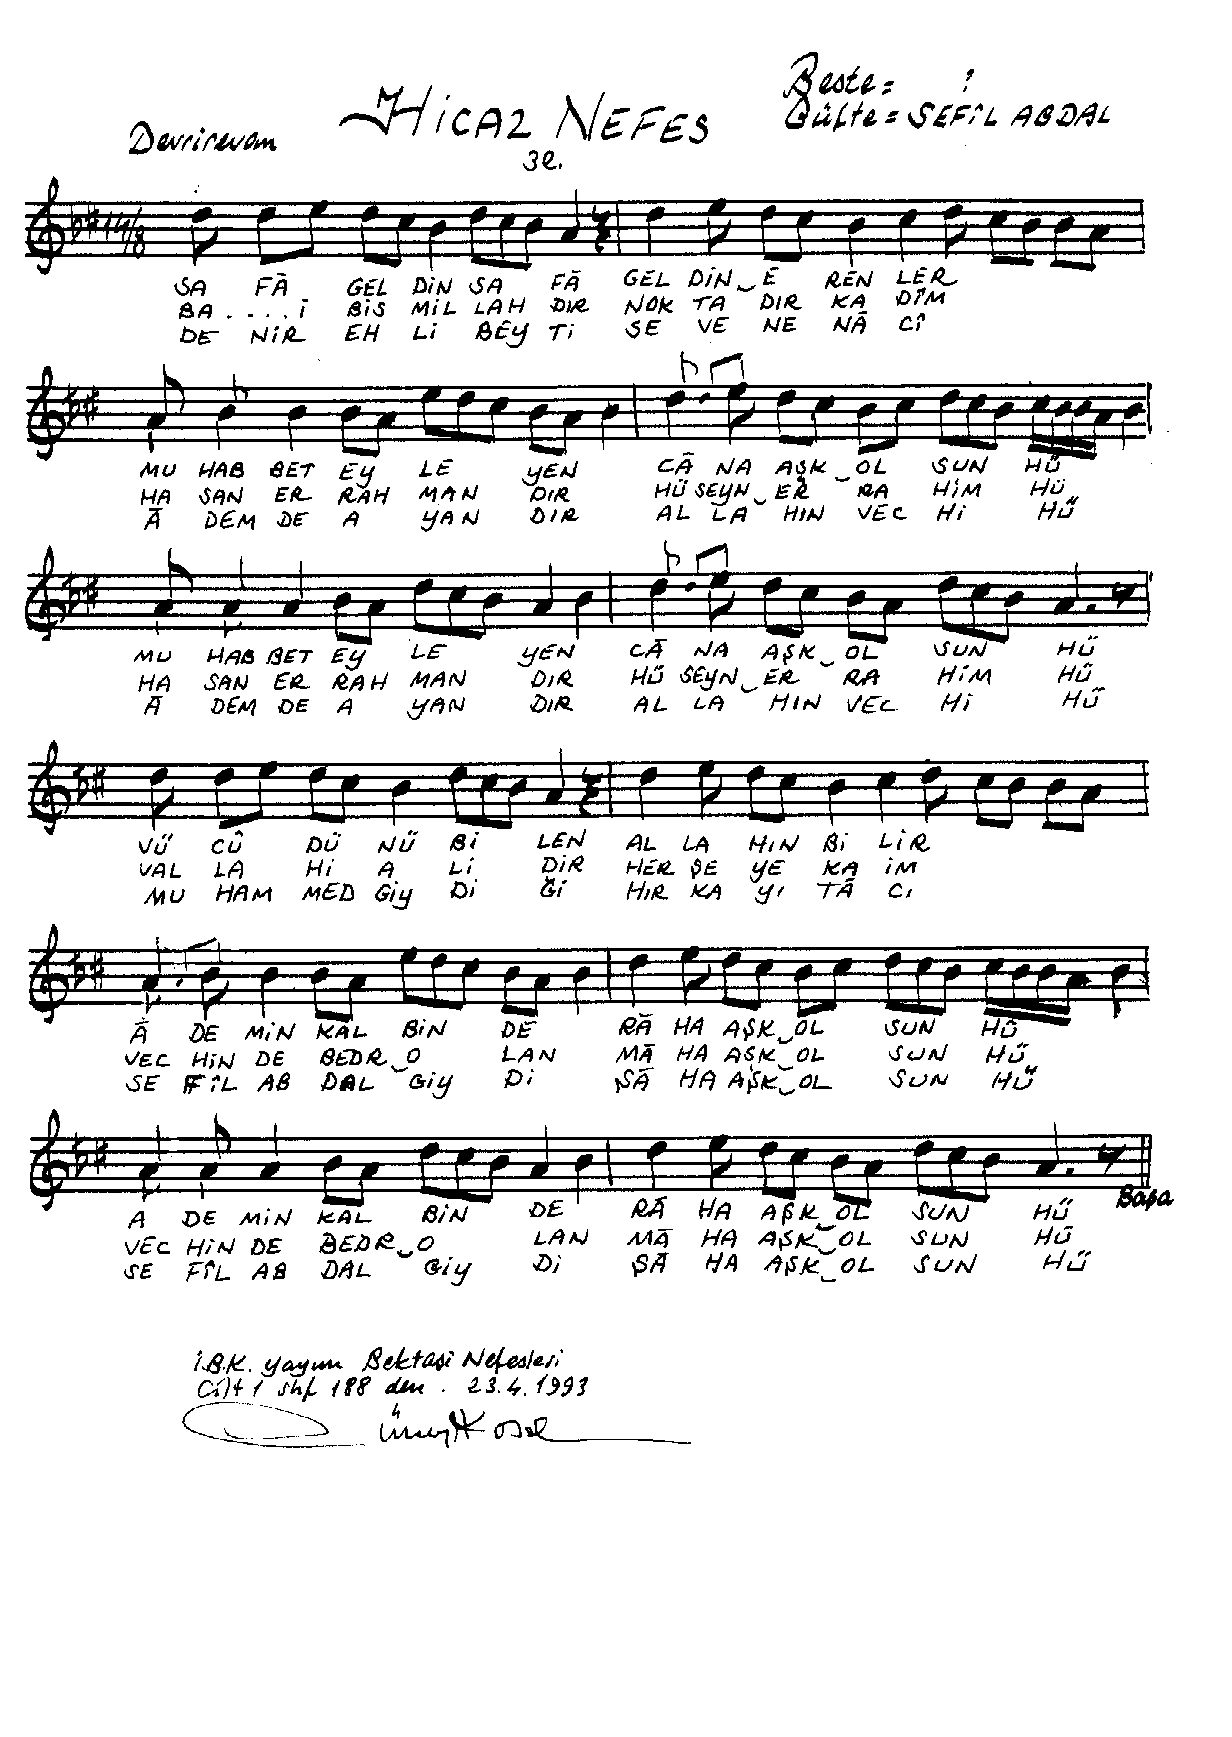 Beste = ?
Güfte = SEFİL ABDAL
HİCAZ NEFES
Devrirevan
32.
14/8
SA FÂ GEL DİN SA FÂ GEL DİN‿E REN LER
BA . . . . İ BİS MİL LAH DIR NOK TA DIR KA DÎM
DE NİR EH Lİ BEY Tİ SE VE NE NÂ CÎ
MU HAB BET EY LE YEN CÂ NA AŞK‿OL SUN HÛ
HA SAN ER RAH MAN DIR HÜ SEYN‿ER RA HİM HÛ
Â DEM DE A YAN DIR AL LA HIN VEC Hİ HÛ
MU HAB BET EY LE YEN CÂ NA AŞK‿OL SUN HÛ
HA SAN ER RAH MAN DIR HÜ SEYN‿ER RA HİM HÛ
Â DEM DE A YAN DIR AL LA HIN VEC Hİ HÛ
VÜ CÛ DÜ NÜ Bİ LEN AL LA HIN Bİ LİR
VAL LA Hİ A Lİ DİR HER ŞE YE KA İM
MU HAM MED GİY Dİ Ğİ HIR KA YI TÂ CI
Â DE MİN KAL BİN DE RÂ HA AŞK‿OL SUN HÛ
VEC HİN DE BEDR‿O LAN MÂ HA AŞK‿OL SUN HÛ
SE FÎL AB DAL GİY Dİ ŞÂ HA AŞK‿OL SUN HÛ
A DE MİN KAL BİN DE RÂ HA AŞK‿OL SUN HÛ
Başa
VEC HİN DE BEDR‿O LAN MÂ HA AŞK‿OL SUN HÛ
SE FÎL AB DAL GİY Dİ ŞÂ HA AŞK‿OL SUN HÛ
İ.B.K. yayını Bektaşi Nefesleri
Cilt 1 shf 188 den . 23.4.1993